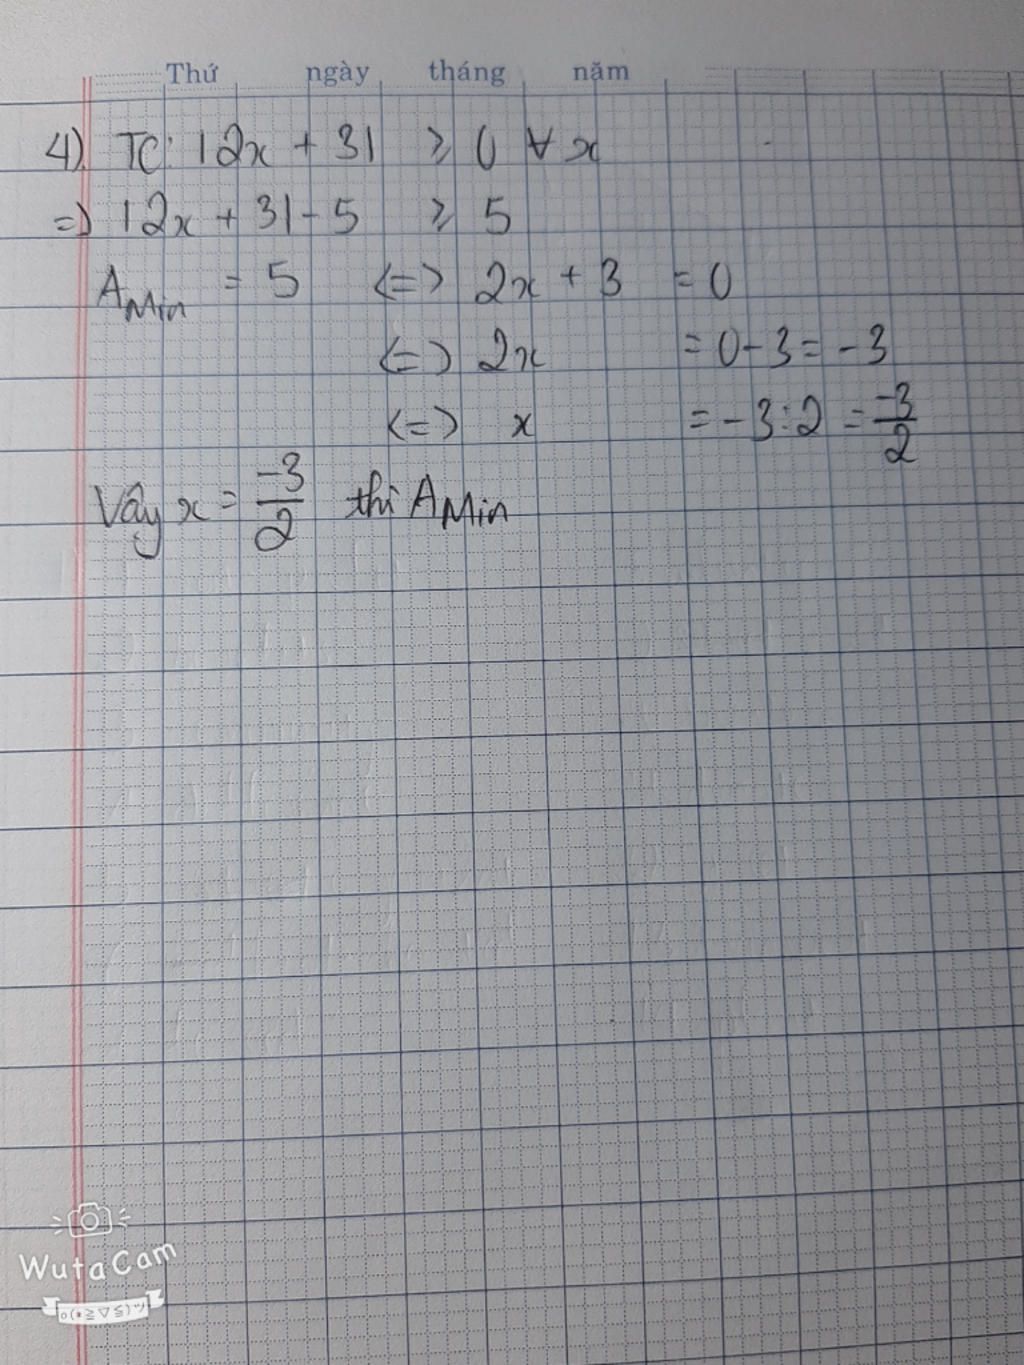 Thứ ngày tháng năm
4) TC: |2x + 3| ≥ 0 ∀ x
=) |2x + 3| - 5 ≥ 5
A Min = 5 <=> 2x + 3 = 0
<=> 2x = 0 - 3 = -3
<=> x = -3 : 2 = -3/2
Vây x = -3/2 thì A Min
WutaCam
o(*≧▽≦)ツ